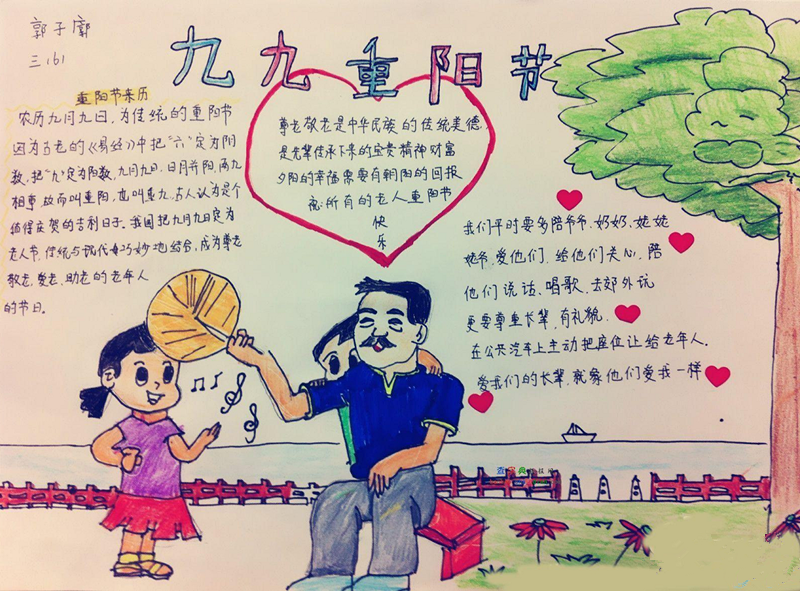 郭子廓
三(6)
九九重阳节
重阳节来历
农历九月九日,为传统的重阳节
因为古老的《易经》中把“六”定为阴
数,把“九”定为阳数,九月九日,日月并阳,两九
相重,故而叫重阳,也叫重九,古人认为是个
值得庆贺的吉利日子。我国把九月九日定为
老人节,传统与现代巧妙地结合,成为尊老
敬老,爱老,助老的老年人
的节日。
尊老敬老是中华民族的传统美德.
是先辈传承下来的宝贵精神财富
夕阳的幸福需要有朝阳的回报
祝:所有的老人重阳节
快
乐
我们平时要多陪爷爷、奶奶、姥姥
姥爷,爱他们,给他们关心,陪
他们说话、唱歌、去郊外玩
更要尊重长辈,有礼貌.
在公共汽车上主动把座位让给老年人.
爱我们的长辈,就象他们爱我一样